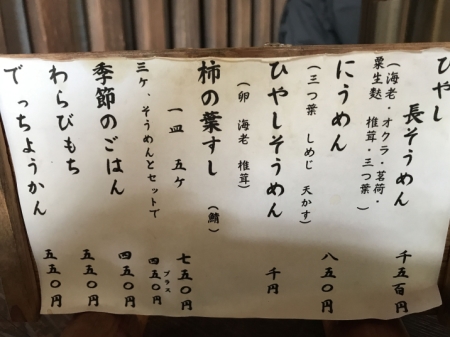 ひやし
長そうめん 千五百円
(海老・オクラ・茗荷・
粟生麩・椎茸・三つ葉)
にうめん 八五〇円
(三つ葉 しめじ 天かす)
ひやしそうめん 千円
(卵 海老 椎茸)
柿の葉すし(鯖)
一皿 五ケ 七五〇円
三ケ、そうめんとセットで プラス四五〇円
季節のごはん 四五〇円
わらびもち 五五〇円
でっちようかん 五五〇円